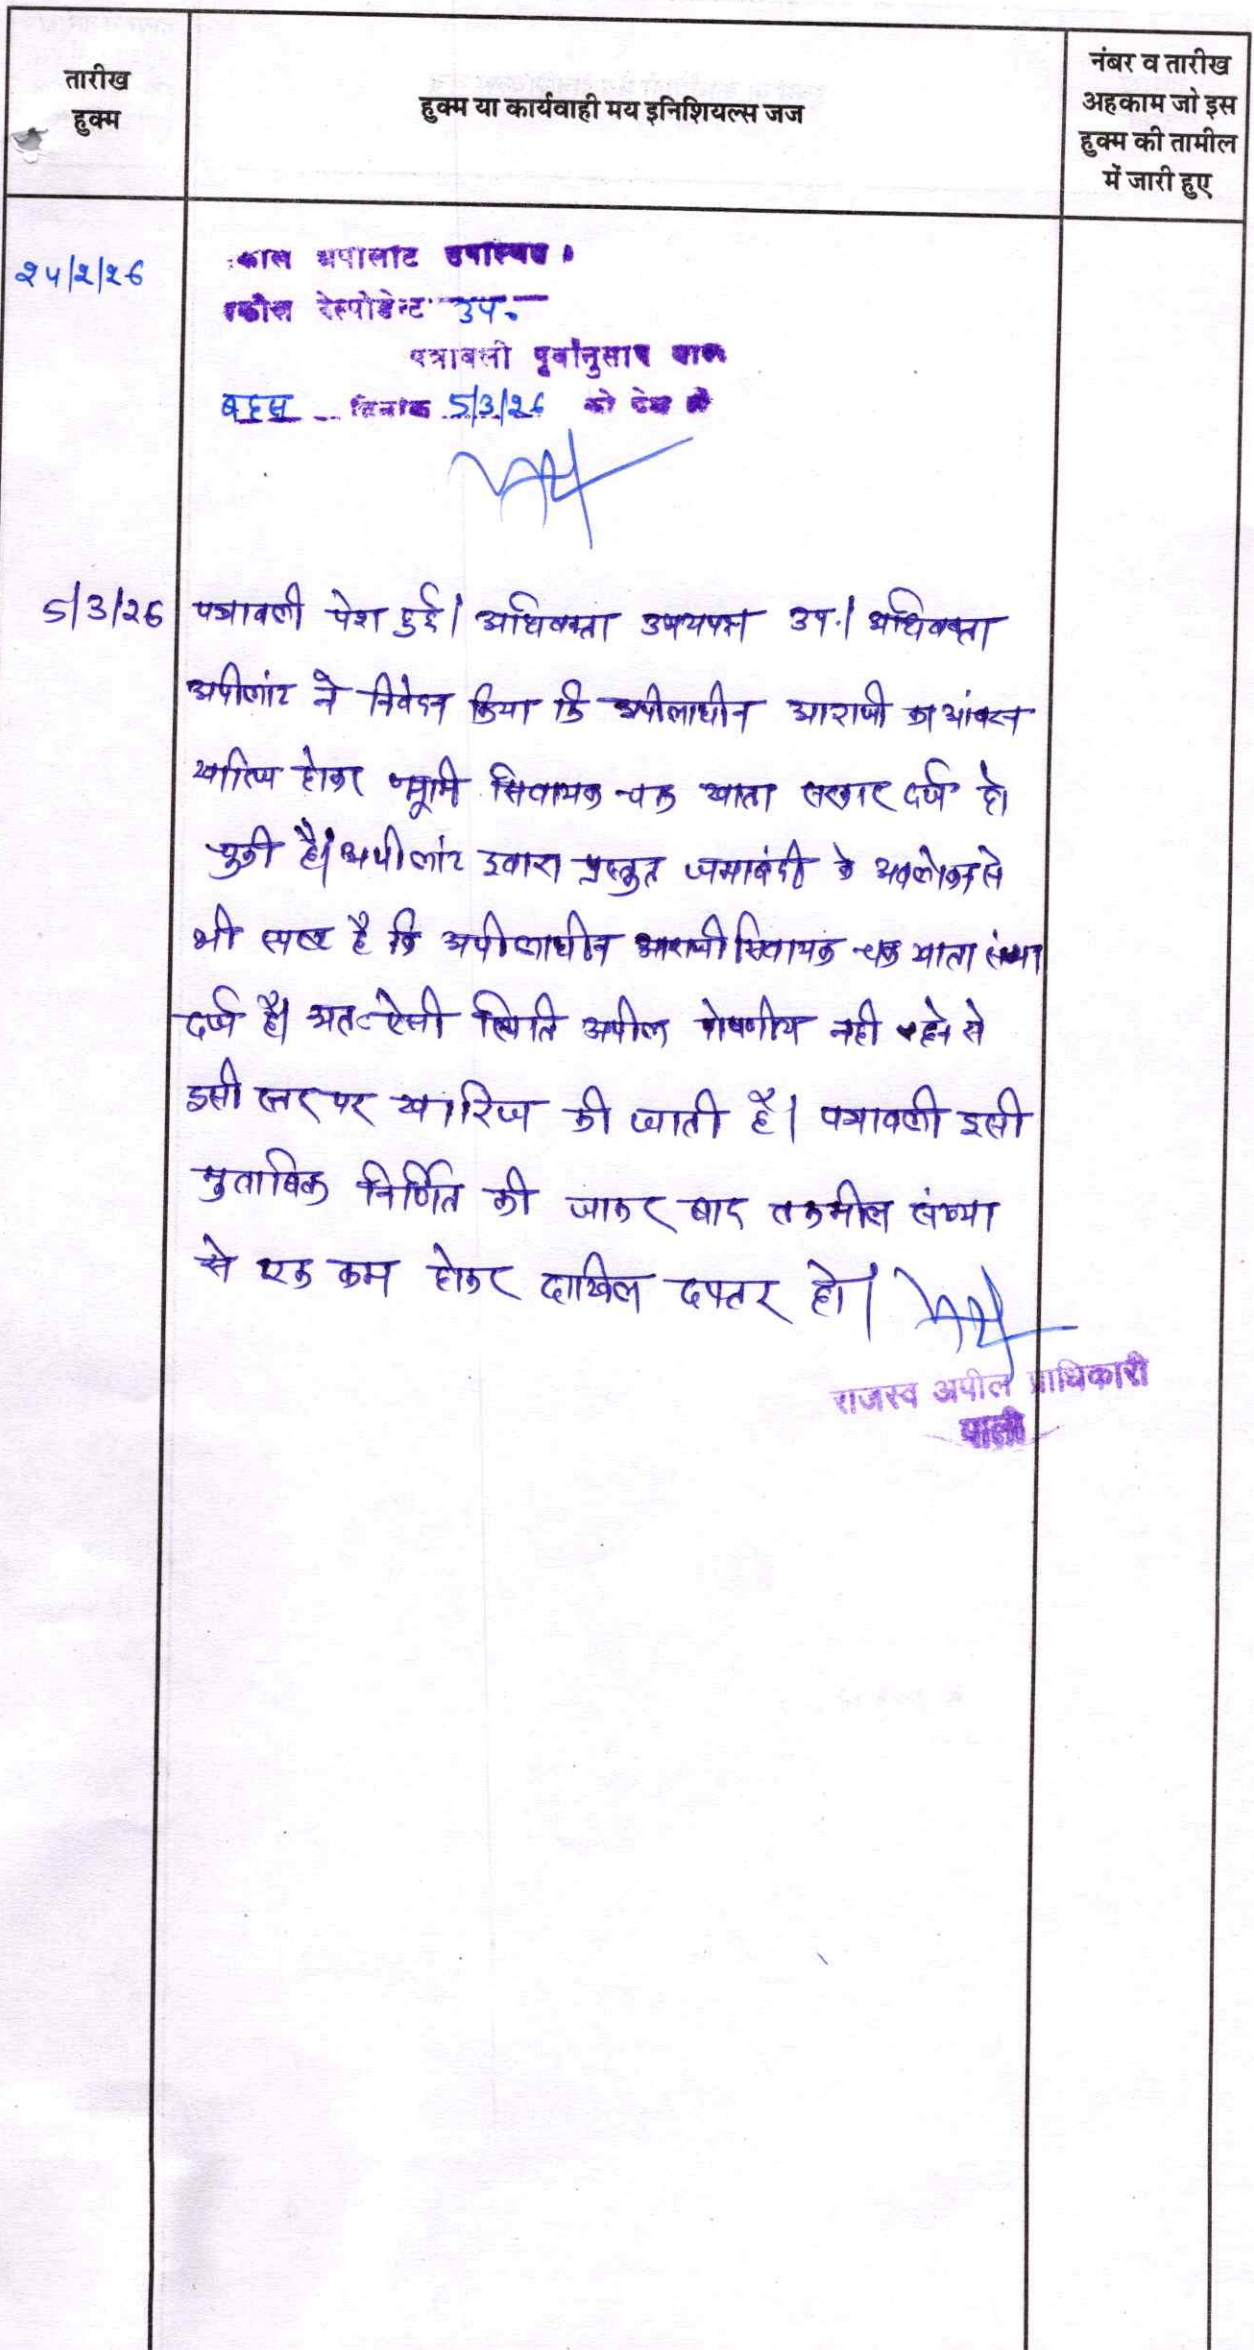 तारीख
हुक्म
हुक्म या कार्यवाही मय इनिशियल्स जज
नंबर व तारीख
अहकाम जो इस
हुक्म की तामील
में जारी हुए
२५/२/२6
अपीलांट उपस्थित ।
रेस्पोडेन्ट उप.
पत्रावली पूर्वानुसार वास्ते
बहस दिनांक 5/3/26 को पेश हो
5/3/26
पत्रावली पेश हुई। अधिवक्ता उभयपक्ष उप.। अधिवक्ता
अपीलांट ने निवेदन किया कि अपीलाधीन आराजी का आंवटन
खारिज होकर भूमि सिवायक चक खाता सरकार दर्ज हो
चुकी है। अपीलांट द्वारा प्रस्तुत जमाबंदी के अवलोकन से
भी स्पष्ट है कि अपीलाधीन आराजी सिवायक चक खाता
दर्ज है। अतः ऐसी स्थिति अपील पोषणीय नही रहने से
इसी स्तर पर खारिज की जाती है। पत्रावली इसी
मुताबिक निर्णित की जाकर बाद तकमील संख्या
से एक कम होकर दाखिल दफ्तर हो।
राजस्व अपील प्राधिकारी
पाली